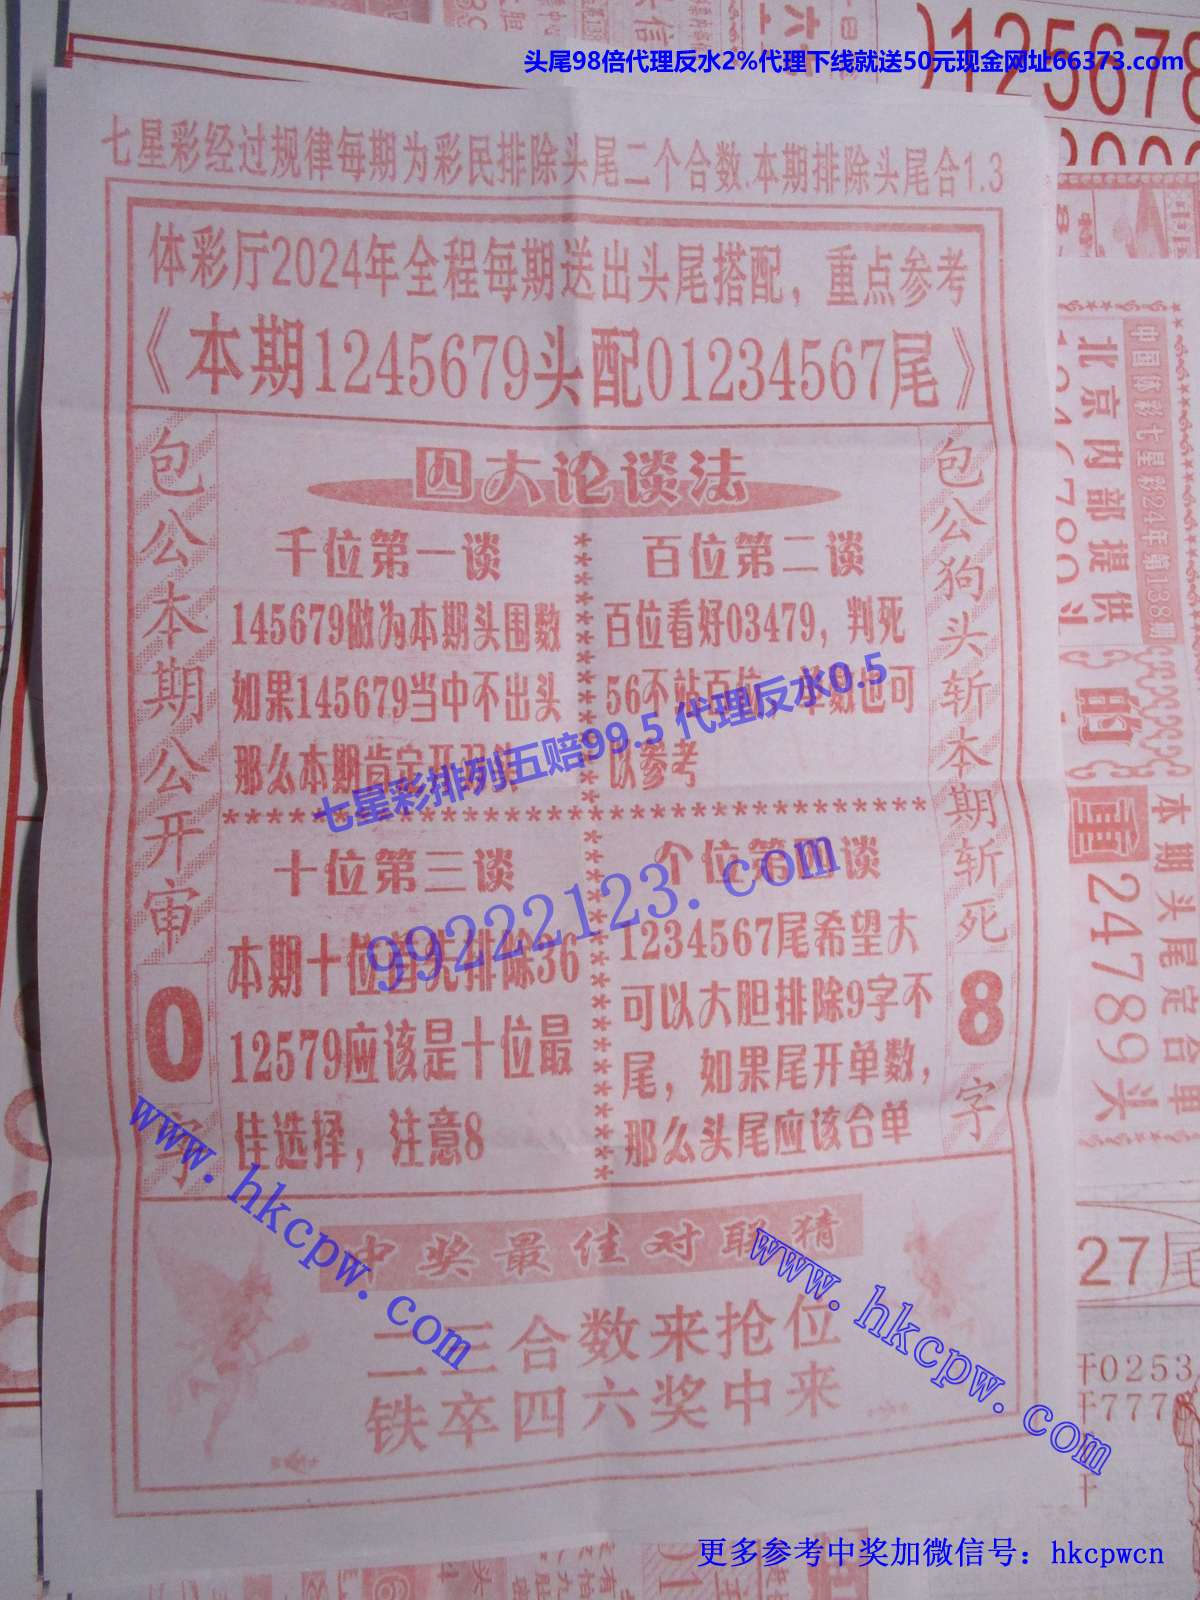 头尾98倍代理反水2%代理下线就送50元现金网址66373.com
)125678
七星彩经过规律每期为彩民排除头尾二个合数.本期排除头尾合1.3
体彩厅2024年全程每期送出头尾搭配，重点参考
《本期1245679头配01234567尾》
包公本期公开审
0
包公狗头斩本期斩死
8
字
四大论谈法
千位第一谈
145679做为本期头围数
如果145679当中不出头
那么本期肯定开
百位第二谈
百位看好03479，判死
56不站百位，单数也可
以参考
七星彩排列五赔99.5 代理反水0.5
十位第三谈
本期十位首先排除36
12579应该是十位最
佳选择，注意8
个位第四谈
1234567尾希望大
可以大胆排除9字不
尾，如果尾开单数，
那么头尾应该合单
99222123.com
中奖最佳对联猜
二三合数来抢位
铁卒四六奖中来
www.hkcpw.com
www.hkcpw.com
中国体彩七星彩24年第138期
北京内部提供
的
重
本期头尾定合单
24789头
27尾
千0253
千777
更多参考中奖加微信号：hkcpwcn